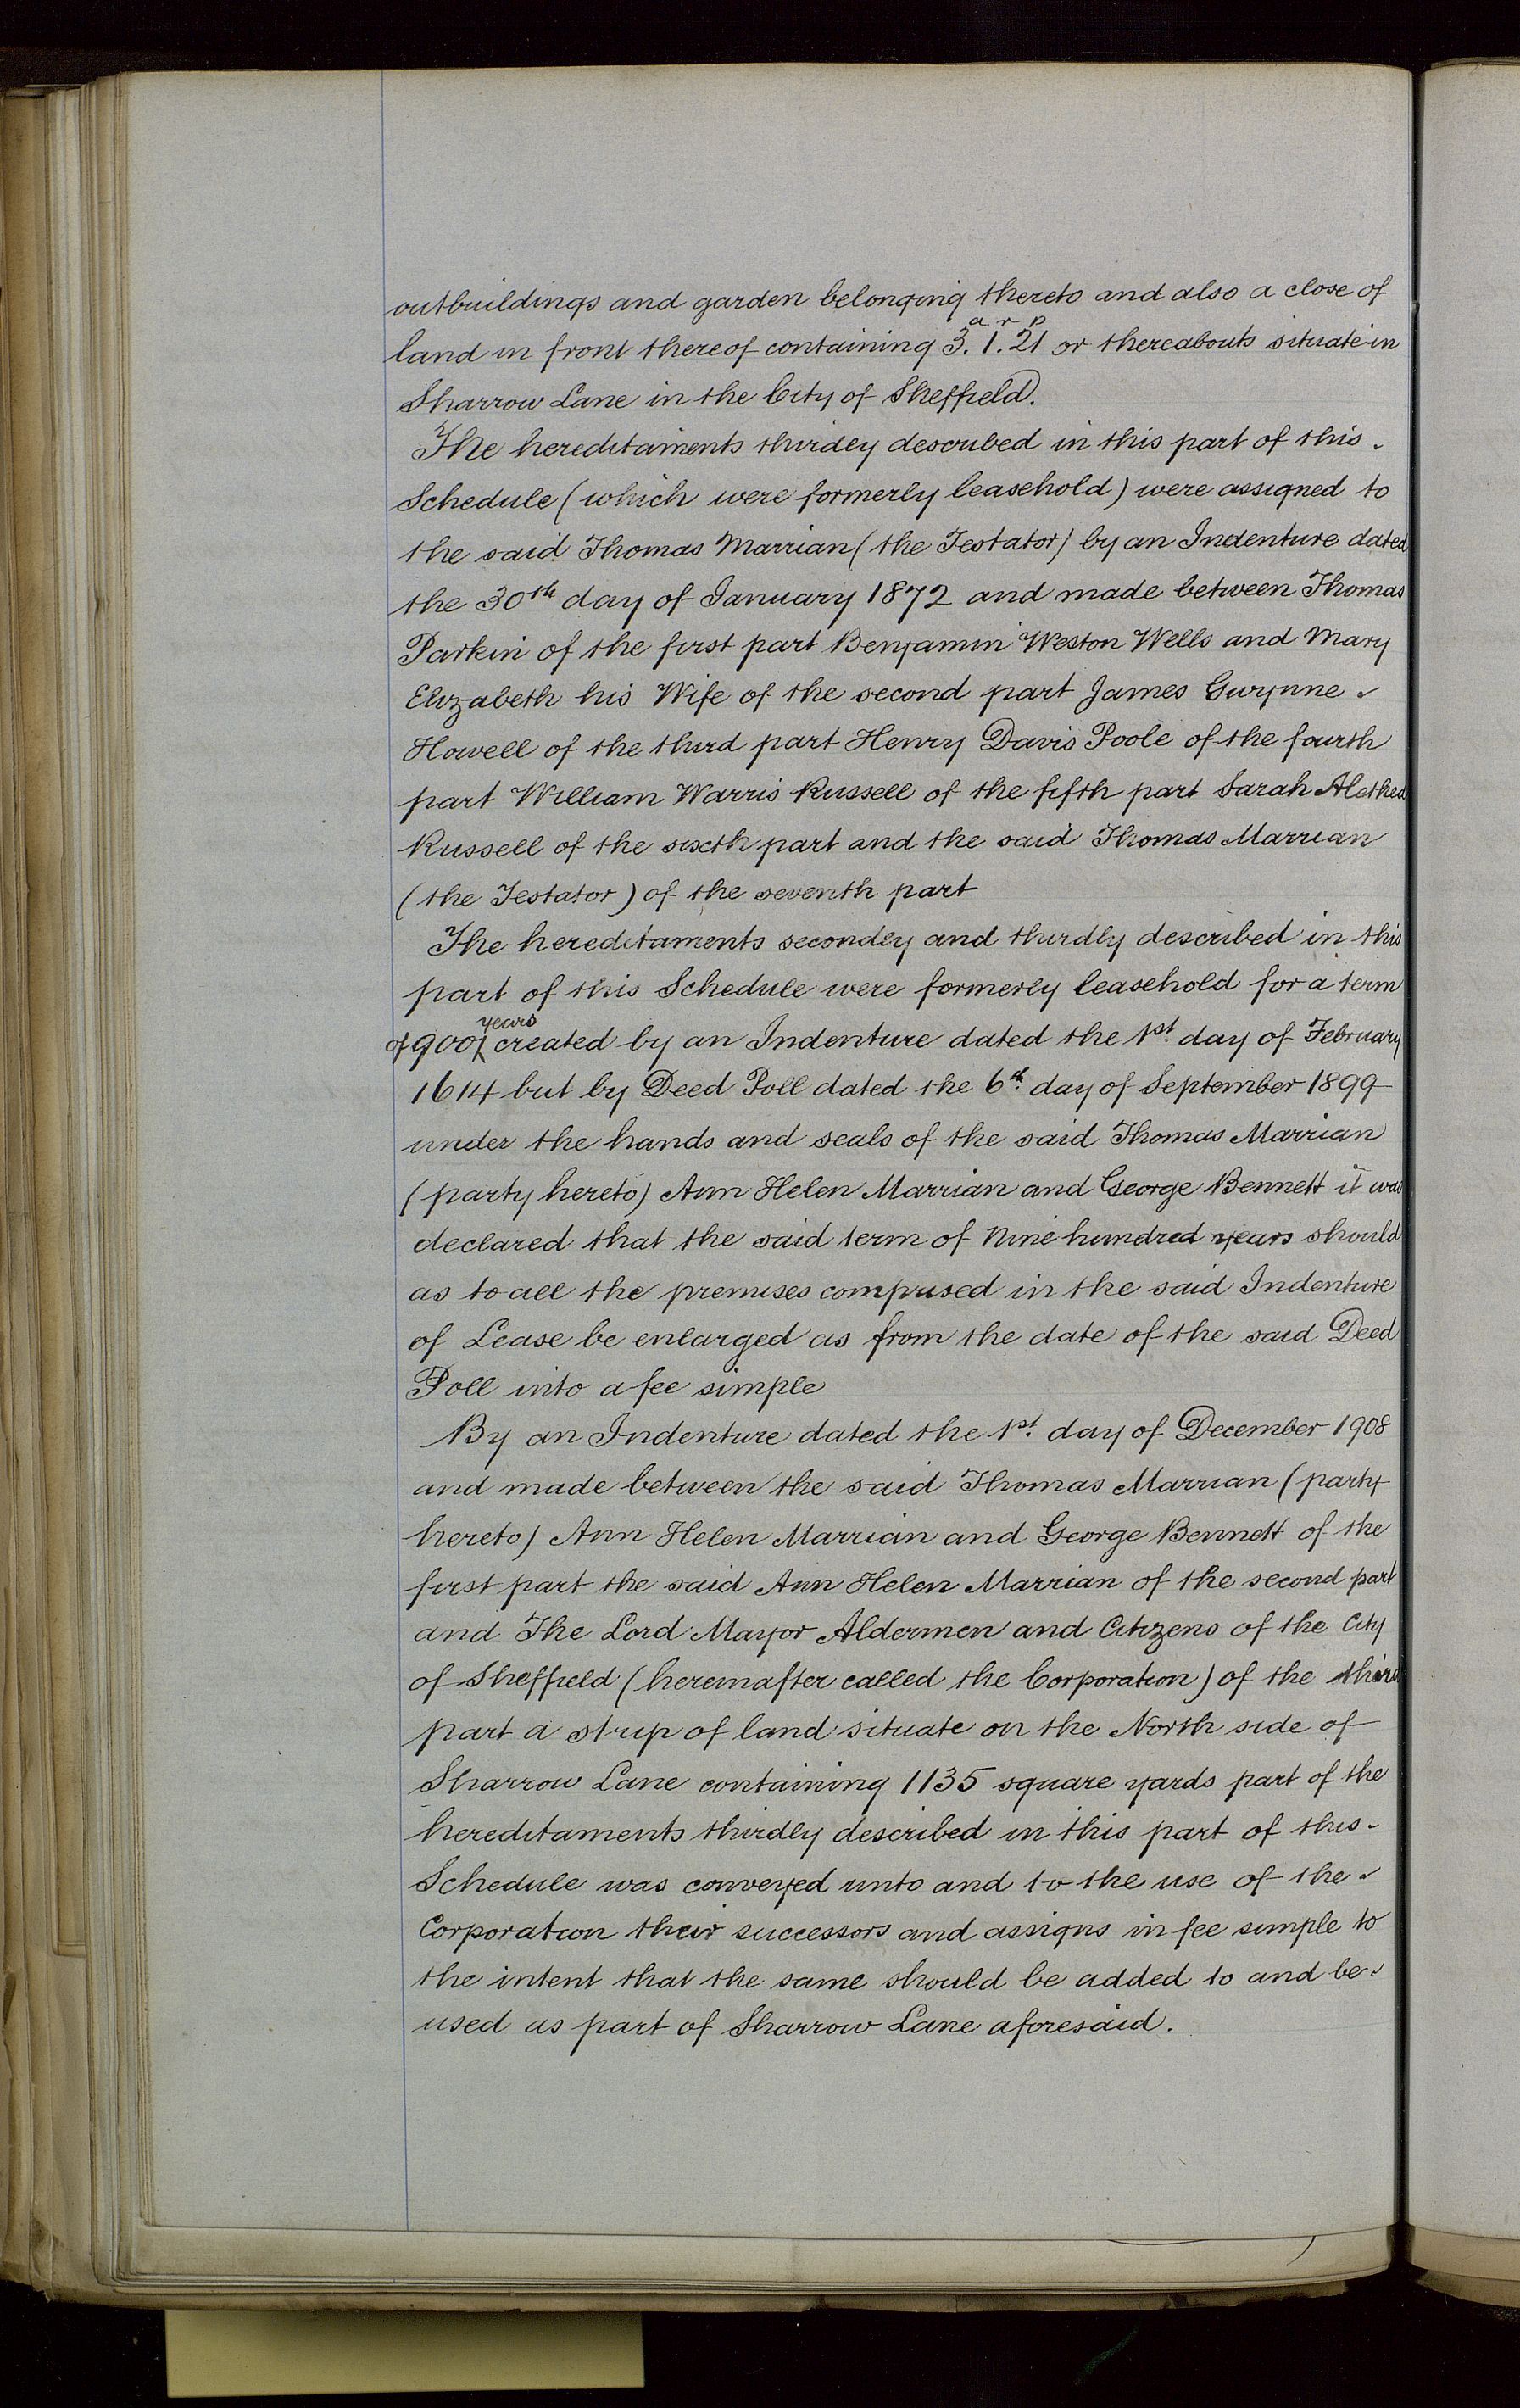 outbuildings and garden belonging thereto and also a close of
a r p
land in front thereof containing 3. 1. 21 or thereabouts situate in
Sharrow Lane in the City of Sheffield.
The hereditaments thirdly described in this part of this
Schedule (which were formerly leasehold) were assigned to
the said Thomas Marrian (the Testator) by an Indenture dated
the 30th day of January 1872 and made between Thomas
Parkin of the first part Benjamin Weston Wells and Mary
Elizabeth his Wife of the second part James Gwynne
Howell of the third part Henry Davis Poole of the fourth
part William Warris Russell of the fifth part Sarah Alethea
Russell of the sixth part and the said Thomas Marrian
(the Testator) of the seventh part
The hereditaments secondly and thirdly described in this
part of this Schedule were formerly leasehold for a term
years
of 900 created by an Indenture dated the 1st day of February
1614 but by Deed Poll dated the 6th day of September 1899
under the hands and seals of the said Thomas Marrian
(party hereto) Ann Helen Marrian and George Bennett it was
declared that the said term of Nine hundred years should
as to all the premises comprised in the said Indenture
of Lease be enlarged as from the date of the said Deed
Poll into a fee simple
By an Indenture dated the 1st day of December 1908
and made between the said Thomas Marrian (party
hereto) Ann Helen Marrian and George Bennett of the
first part the said Ann Helen Marrian of the second part
and The Lord Mayor Aldermen and Citizens of the City
of Sheffield (hereinafter called the Corporation) of the third
part a strip of land situate on the North side of
Sharrow Lane containing 1135 square yards part of the
hereditaments thirdly described in this part of this
Schedule was conveyed unto and to the use of the
Corporation their successors and assigns in fee simple to
the intent that the same should be added to and be
used as part of Sharrow Lane aforesaid.